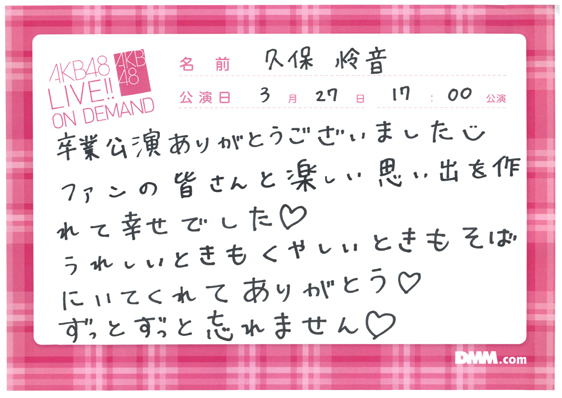 AKB48
LIVE!!
ON DEMAND
AKB
48
名前 久保 怜音
公演日 3月27日 17:00公演
卒業公演ありがとうございました
ファンの皆さんと楽しい思い出を作
れて幸せでした♡
うれしいときもくやしいときもそば
にいてくれてありがとう♡
ずっとずっと忘れません♡
DMM.com